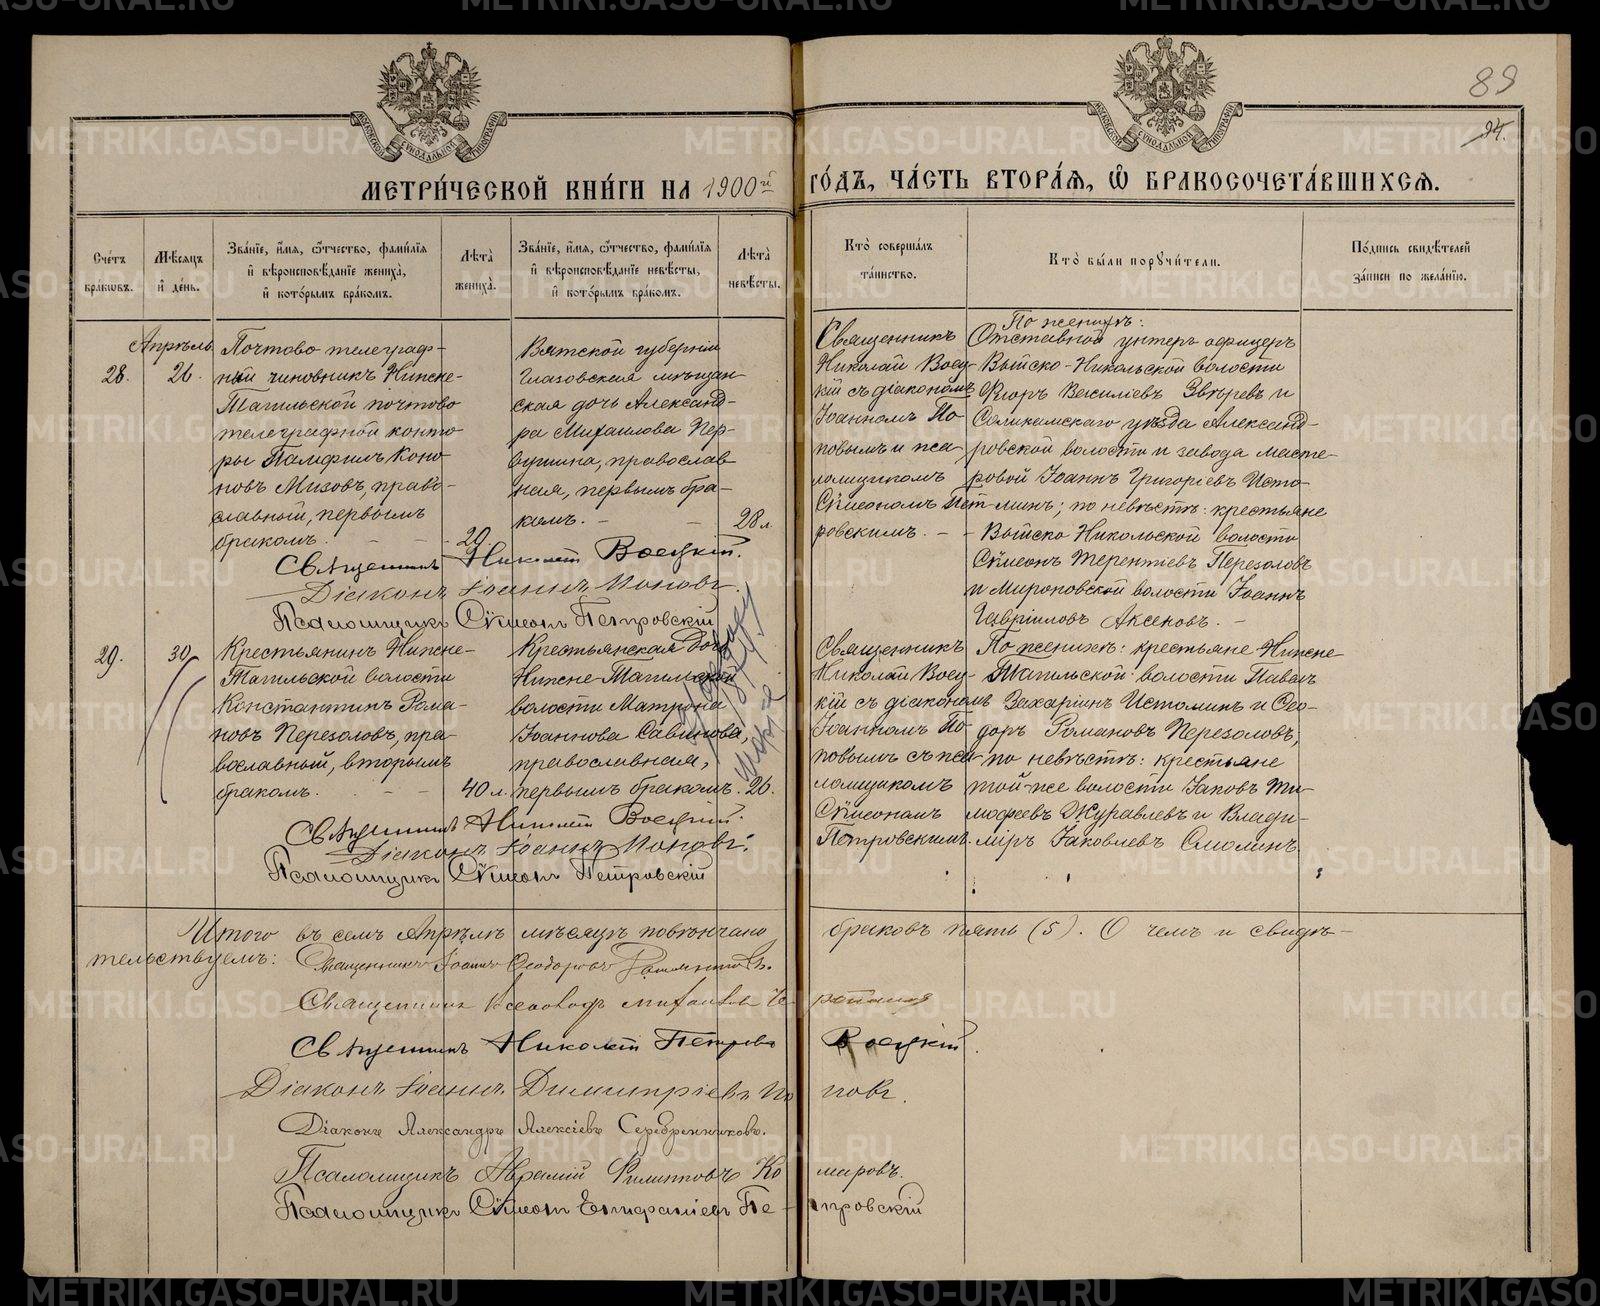 METRIKI.GASO-URAL.RU
89
94.
МОСКОВСКОЙ СѴНОДАЛЬНОЙ ТИПОГРАФІИ
МОСКОВСКОЙ СѴНОДАЛЬНОЙ ТИПОГРАФІИ
МЕТРИ́ЧЕСКОЙ КНИ́ГИ НА 1900й ГО́ДЪ, ЧА́СТЬ ВТОРА́Я, Ѽ БРАКОСОЧЕТА́ВШИХСЯ.
Сче́тъ бра́ковъ.
Мѣ́сяцъ и҆ де́нь.
Зва́нїе, и҆́мя, ѻ҆́тчество, фами́лїя и҆ вѣроисповѣ́данїе жениха̀, и҆ кото́рымъ бра́комъ.
Лѣ́та жениха̀.
Зва́нїе, и҆́мя, ѻ҆́тчество, фами́лїя и҆ вѣроисповѣ́данїе невѣ́сты, и҆ кото́рымъ бра́комъ.
Лѣ́та невѣ́сты.
Кто̀ соверша́лъ та́инство.
Кто̀ бы́ли порꙋчи́тели.
По́дпись свидѣ́телей за́писи по жела́нїю.
Апрѣль
28.
26.
Почтово телеграф-
ный чиновникъ Нижне-
Тагильской почтово
телеграфной конто
ры Памфилъ Коно
новъ Мизовъ, право-
славный, первымъ
бракомъ.
29.
Вятской губерніи
Глазовская мѣщан
ская дочь Александ-
ра Михаилова Пер-
вушина, православ
ная, первымъ бра-
комъ. -
28 л.
Священникъ
Николай Воец-
кій съ діакономъ
Іоанномъ По-
повымъ и пса
ломщикомъ
Сѵмеономъ Пет
ровскимъ. -
По женихѣ:
Отставной унтеръ офицеръ
Выйско-Никольской волости
Ѳедоръ Василіевъ Звѣревъ и
Соликамскаго уѣзда Александ-
ровской волости и завода масте-
ровой Іоаннъ Григоріевъ Исто-
минъ; по невѣстѣ: крестьяне
Выйско Никольской волости
Сѵмеонъ Терентіевъ Перезоловъ
и Мироновской волости Іоаннъ
Гавріиловъ Аксеновъ. -
Священникъ Николай Воецкій.
Діаконъ Іоаннъ Поповъ.
Псаломщикъ Сѵмеонъ Петровскій
29.
30
Крестьянинъ Нижне-
Тагильской волости
Константинъ Рома-
новъ Перезоловъ, пра-
вославный, вторымъ
бракомъ.
40 л.
Крестьянская дочь
Нижне-Тагильской
волости Матрона
Іоаннова Савинова,
православная,
первымъ бракомъ.
26.
Священникъ
Николай Воец-
кій съ діакономъ
Іоанномъ По-
повымъ съ пса-
ломщикомъ
Сѵмеономъ
Петровскимъ.
По женихѣ: крестьяне Нижне
Тагильской волости Павелъ
Захаріинъ Истоминъ и Ѳео-
доръ Романовъ Перезоловъ,
по невѣстѣ: крестьяне
той-же волости Іаковъ Ти-
мофеевъ Журавлевъ и Влади-
міръ Іаковлевъ Смолинъ.
Священникъ Николай Воецкій.
Діаконъ Іоаннъ Поповъ.
Псаломщикъ Сѵмеонъ Петровскій
Итого въ семъ Апрѣлѣ мѣсяцѣ повѣнчано браковъ пять (5). О чемъ и свидѣ-
тельствуемъ: Священникъ Іоаннъ Ѳеодоровъ
Священникъ Всеволодъ Михаиловъ
Священникъ Николай Петровъ Воецкій.
Діаконъ Іоаннъ Димитріевъ Поповъ.
Діаконъ Александръ Алексіевъ Серебренниковъ.
Псаломщикъ Аврамій Филипповъ Комаровъ.
Псаломщикъ Сѵмеонъ Епифаніевъ Пе-тровскій